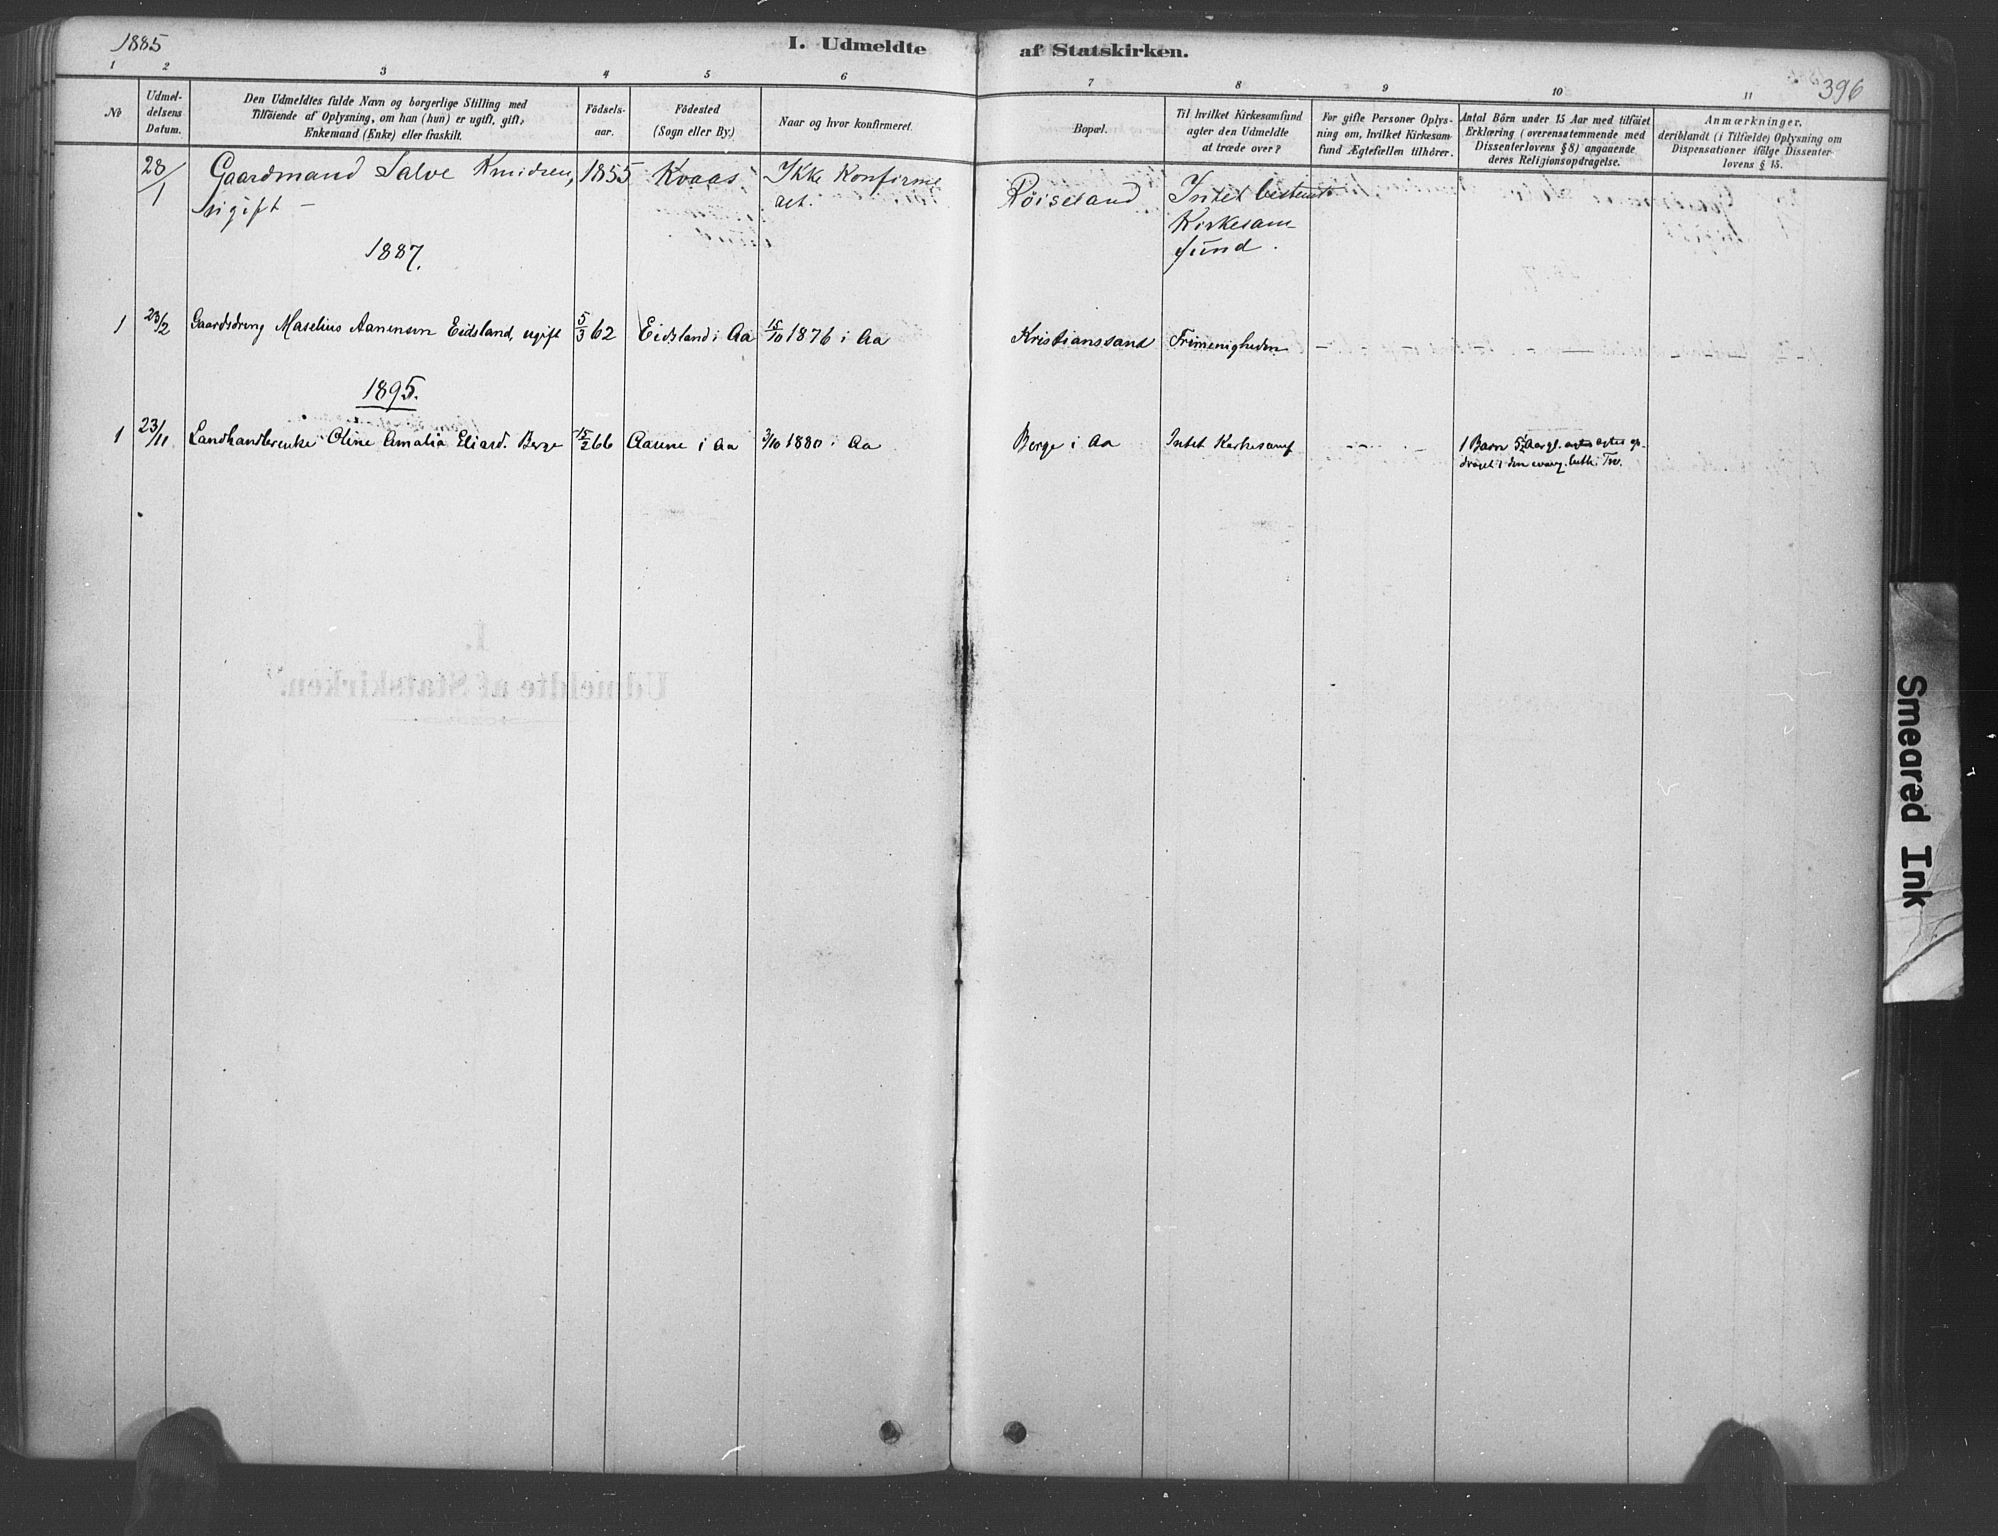 1885
I. Udmeldte af Statskirken.
396
1 2 3 4 5 6 7 8 9 10 11
No
Udmel-
delsens
Datum.
Den Udmeldtes fulde Navn og borgerlige Stilling med
Tilføiende af Oplysning, om han (hun) er ugift, gift,
Enkemand (Enke) eller fraskilt.
Födsels-
aar.
Födested
(Sogn eller By.)
Naar og hvor konfirmeret.
Bopæl.
Til hvilket Kirkesamfund
agter den Udmeldte
at træde over?
For gifte Personer Oplys-
ning om, hvilket Kirkesam-
fund Ægtefællen tilhörer.
Antal Börn under 15 Aar med tilföiet
Erklæring (overensstemmende med
Dissenterlovens § 8) angaaende
deres Religionsopdragelse.
Anmærkninger,
deriblandt (i Tilfælde) Oplysning om
Dispensationer ifölge Dissenter-
lovens § 15.
28/1 Gaardmand Salve Knudsen, 1855 Kvaas Ikke Konfirme Röiseland Intet bestemt
ugift — ret. Kirkesam-
fund.
1887.
1 23/2 Gaardsdreng Maselius Aanensen Eidsland, ugift 5/3 62 Eidsland i Aa 15/10 1876 i Aa Kristianssand Frimenigheden —
1895.
1 23/11 Landhandlerenke Oline Amalia Eliard. Berge 15/2 66 Aaune i Aa 3/10 1880 i Aa Berge i Aa Intet Kirkesamf — 1 Barn
i den evang. luth. Tro.
I.
Udmeldte af Statskirken.
Smeared Ink